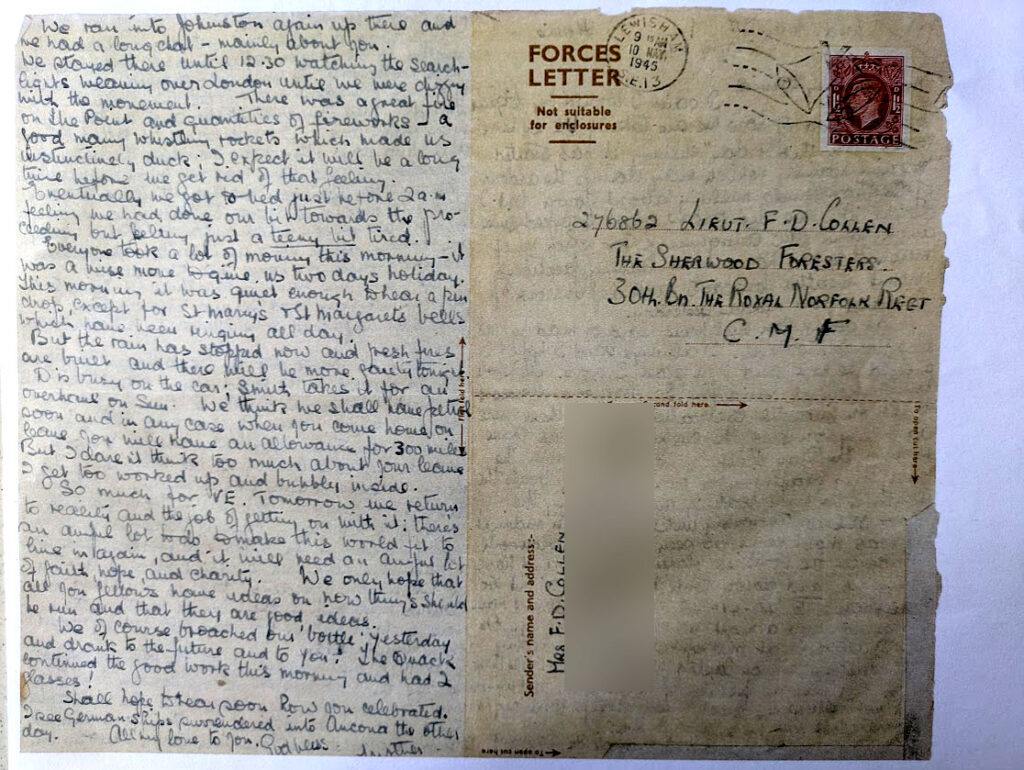 We ran into Johnston again up there and
we had a long chat – mainly about you.
We stayed there until 12.30 watching the search-
lights weaving over London until we were dizzy
with the movement. There was a great fire
on the Point and quantities of fireworks – a
good many whistling rockets which made us
instinctively duck; I expect it will be a long
time before we get rid of that feeling.
Eventually we got to bed just before 2 a.m
feeling we had done our bit towards the pro-
ceeding but feeling just a teeny bit tired.
Everyone took a lot of moving this morning – it
was a wise move to give us two days holiday.
This morning it was quiet enough to hear a pin
drop, except for St Marys & St Margarets bells
which have been ringing all day.
But the rain has stopped now and fresh fires
are built and there will be more gaiety tonight.
D is busy on the car; Smith takes it for an
overhaul on Sun. We think we shall have petrol
soon and in any case when you come home on
leave you will have an allowance for 300 miles
But I daren't think too much about your leave
I get too worked up and bubbly inside.
So much for VE. Tomorrow we return
to reality and the job of getting on with it; there's
an awful lot to do to make this world fit to
live in again, and it will need an awful lot
of faith, hope, and charity. We only hope that
all you fellows have ideas on how things should
be run and that they are good ideas.
We of course broached our 'bottle' yesterday
and drank to the future and to you! The Quack
continued the good work this morning and had 2
glasses!
Shall hope to hear soon how you celebrated.
I see German ships surrendered into Ancona the other
day. All my love to you. God bless
First fold here
FORCES
LETTER
Not suitable
for enclosures
LEWISHAM
9 15 AM
10 MAY
1945
S.E.13
POSTAGE
276862 LIEUT. F. D. COLLEN
THE SHERWOOD FORESTERS.
30th. Bn. THE ROYAL NORFOLK REGT
C. M. F
Second fold here.
To open cut here
Sender's name and address:-
MRS F. D. COLLEN
To open cut here